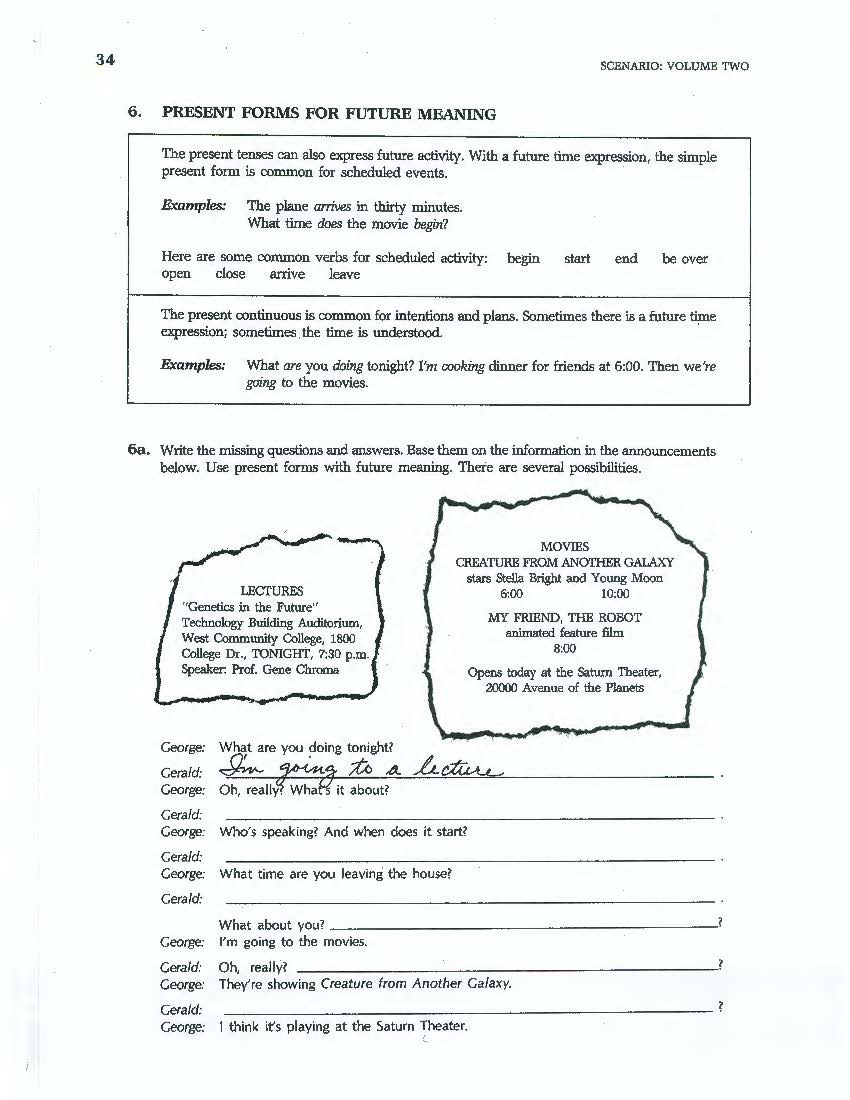 34
SCENARIO: VOLUME TWO
6. PRESENT FORMS FOR FUTURE MEANING
The present tenses can also express future activity. With a future time expression, the simple
present form is common for scheduled events.
Examples: The plane arrives in thirty minutes.
What time does the movie begin?
Here are some common verbs for scheduled activity: begin start end be over
open close arrive leave
The present continuous is common for intentions and plans. Sometimes there is a future time
expression; sometimes the time is understood.
Examples: What are you doing tonight? I'm cooking dinner for friends at 6:00. Then we're
going to the movies.
6a. Write the missing questions and answers. Base them on the information in the announcements
below. Use present forms with future meaning. There are several possibilities.
LECTURES
"Genetics in the Future"
Technology Building Auditorium,
West Community College, 1800
College Dr., TONIGHT, 7:30 p.m.
Speaker: Prof. Gene Chroma
MOVIES
CREATURE FROM ANOTHER GALAXY
stars Stella Bright and Young Moon
6:00 10:00
MY FRIEND, THE ROBOT
animated feature film
8:00
Opens today at the Saturn Theater,
20000 Avenue of the Planets
George: What are you doing tonight?
Gerald: I'm going to a lecture.
George: Oh, really? What's it about?
Gerald: .
George: Who's speaking? And when does it start?
Gerald: .
George: What time are you leaving the house?
Gerald: .
What about you? ?
George: I'm going to the movies.
Gerald: Oh, really? ?
George: They're showing Creature from Another Galaxy.
Gerald: ?
George: I think it's playing at the Saturn Theater.